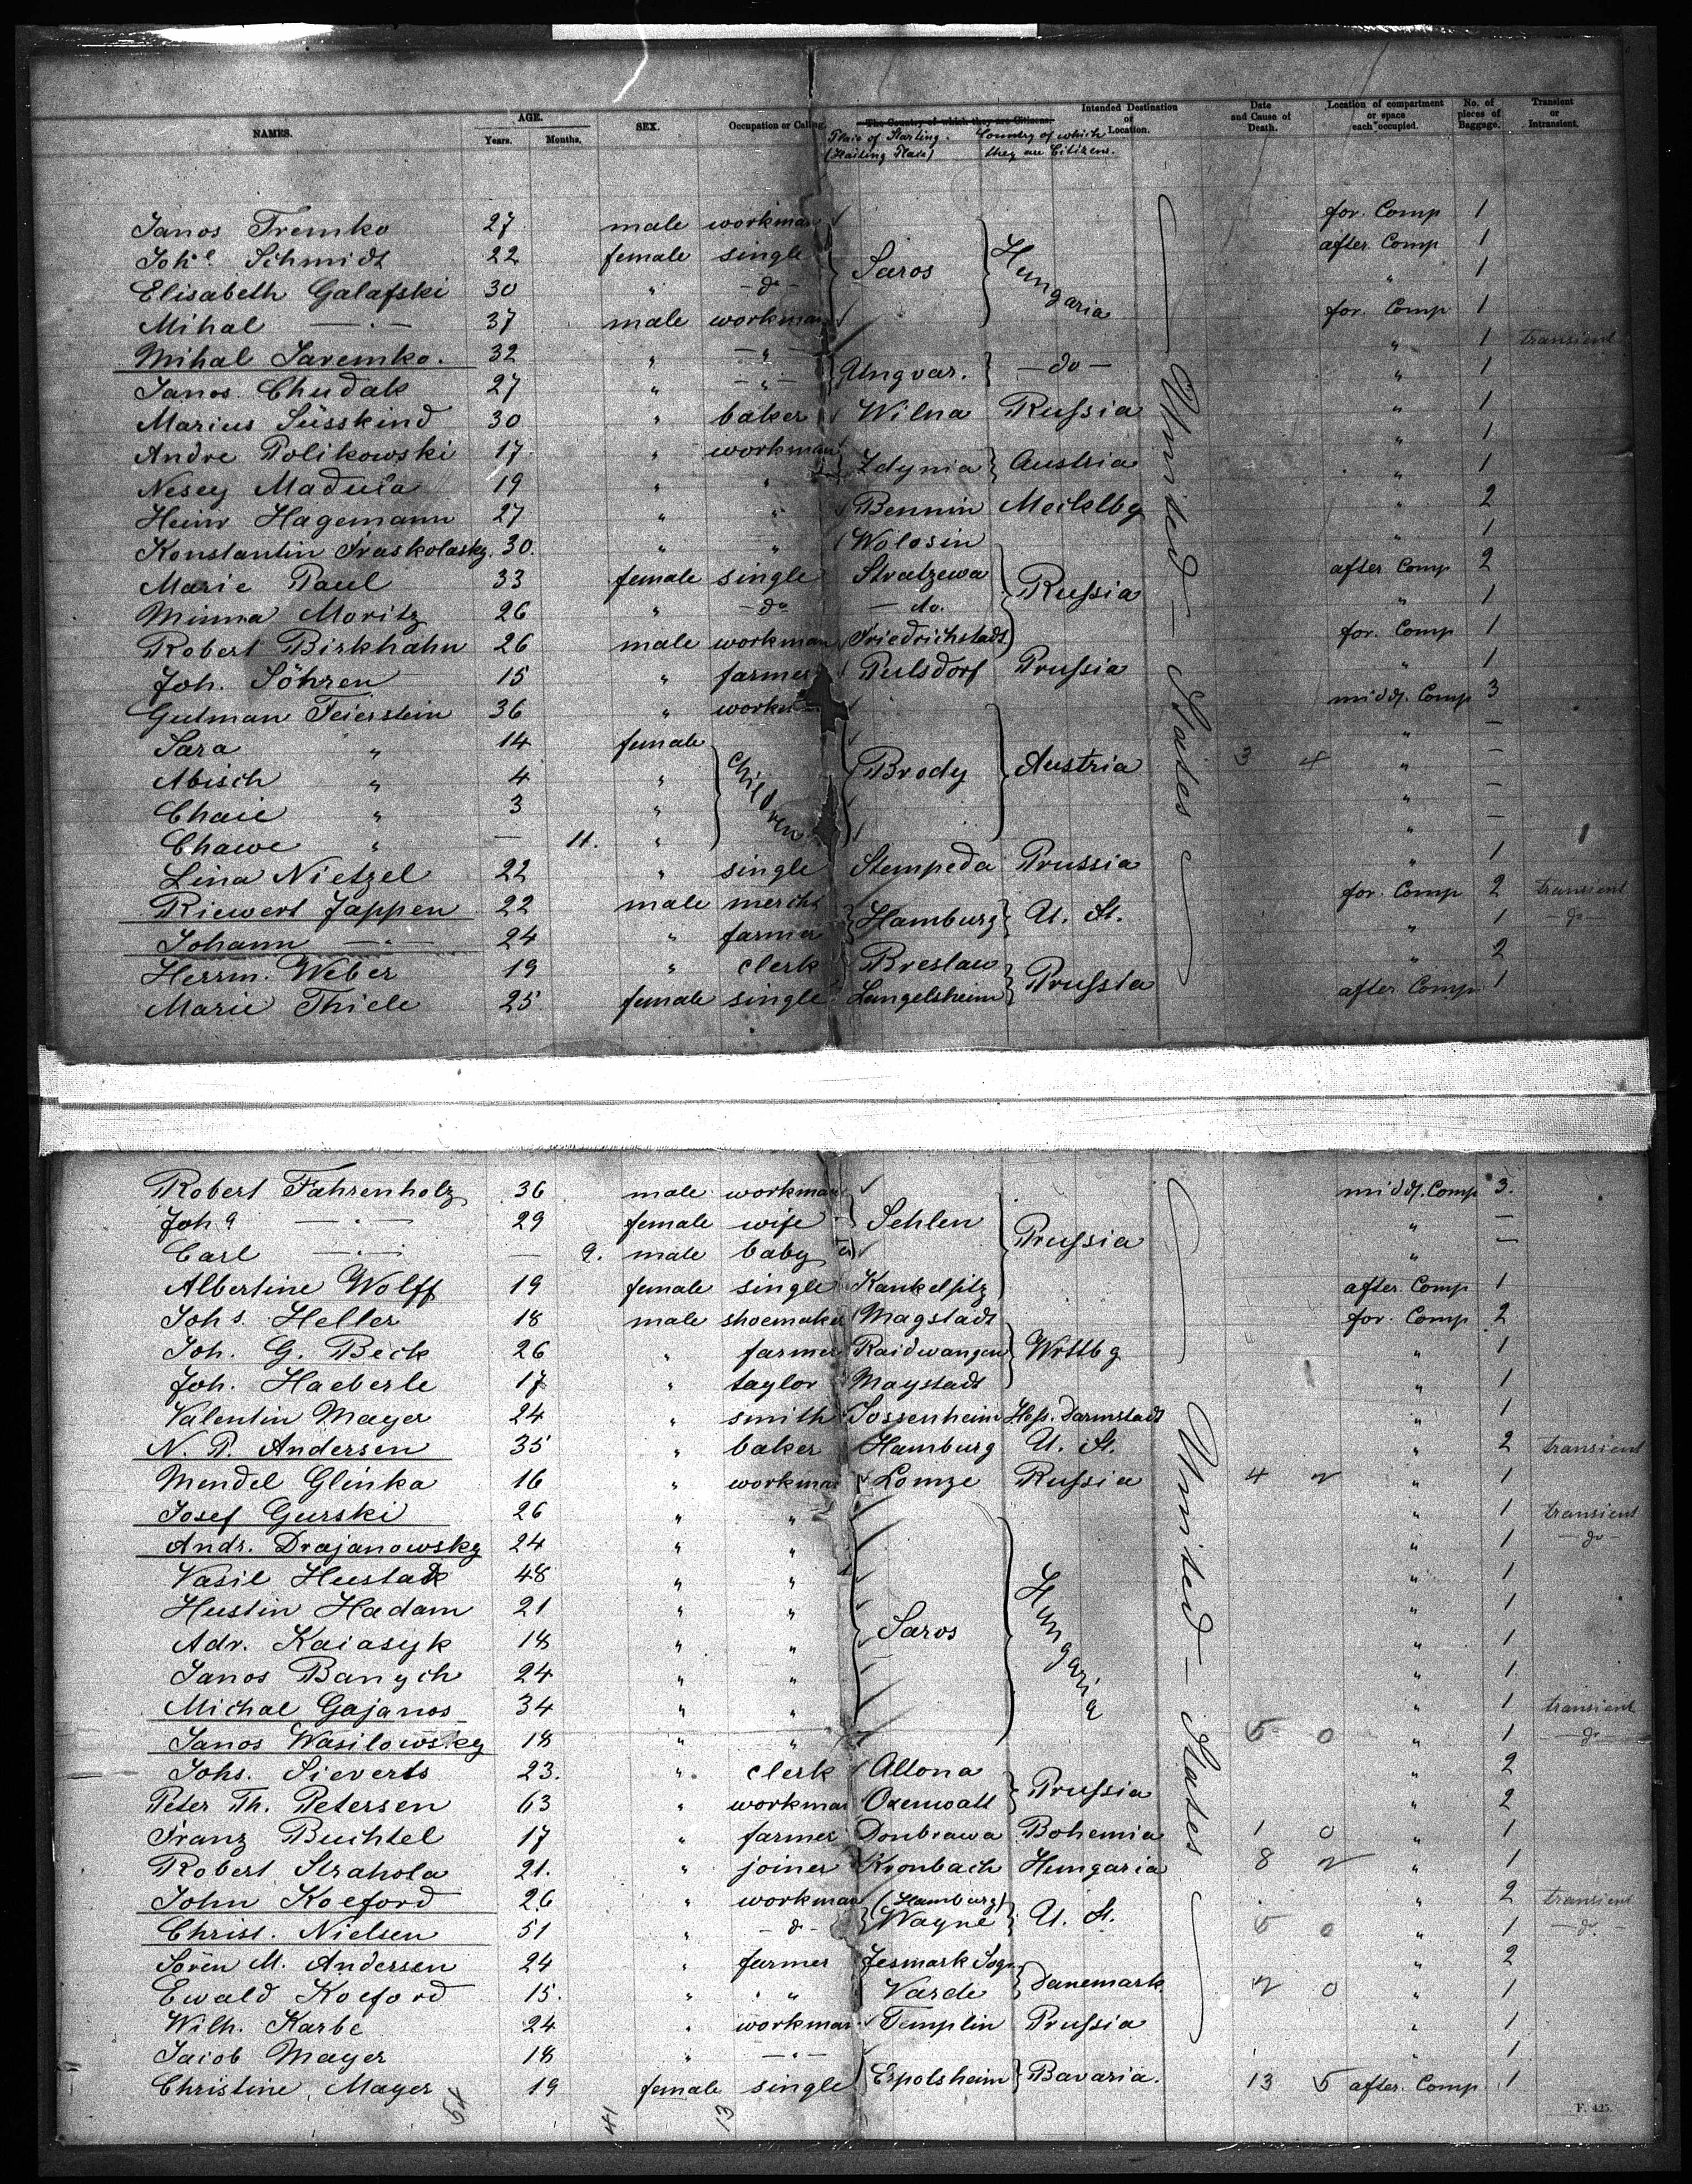 NAMES. AGE. Years. Months. SEX. Occupation or Calling. The Country of which they are Citizens. Intended Destination or Location. Date and Cause of Death. Location of compartment or space each occupied. No. of pieces of Baggage. Transient or Intransient.
Place of Starting. (Starting Place) Country of which they are Citizens.
Janos Tremko 27 male workman for. Comp 1
Joh^e. Schmidt 22 female single after Comp 1
Elisabeth Galafski 30 " - do - Saros Hungaria " 1
Mihal — " — 37 male workman for. Comp 1
Mihal Saremko. 32 " — " — " 1 transient
Janos Chudak 27 " — " — Ungvar. — do — " 1
Marius Süsskind 30 " baker Wilna Rußia " 1
Andre Polikowski 17 " workman " 1
Nesey Madusa 19 " " Zdynia Austria " 1
Heinr Hagemann 27 " " Bennin Mecklbg " 2
Konstantin Praskolasky. 30. " " Wolosin " 1
Marie Paul 33 female single Stratzewa Rußia after Comp 2
Minna Moritz 26 " — do — do. " 1
Robert Birkhahn 26 male workman Friedrichstadt for. Comp 1
Joh. Söhren 15 " farmer Pulsdorf Prußia " 1
Gutman Feierstein 36 " workm midd. Comp 3
Sara " 14 female " —
Abisch " 4 " Children Brody Austria 3 4 " —
Chaie " 3 " " —
Chawe " — 11. " " —
Lina Nietzel 22 " single Stempeda Prussia " 1
Riewert Jappen 22 male mercht for. Comp 2 transient
Johann — " — 24 " farmer Hamburg U. St. " 1 - do -
Herrm. Weber 19 " clerk Breslaw " 2
Marie Thiele 25 female single Langelsheim Prußia after Comp 1
United – States
Robert Fahrenholz 36 male workman midd. Comp 3.
Joh^a — " — 29 female wife Sehlen " —
Carl — " — — 9. male baby Prußia " —
Albertine Wolff 19 female single Kankelfitz after Comp 1
Johs. Heller 18 male shoemaker Magstadt for. Comp 2
Joh. G. Beck 26 " farmer Raidwangen Wrttbg " 1
Joh. Haeberle 17 " taylor Magstadt " 1
Valentin Mayer 24 " smith Sossenheim Heß. Darmstadt " 1
N. P. Andersen 35 " baker Hamburg U. St. " 2 transient
Mendel Glinka 16 " workman Lomze Rußia 4 2 " 1
Josef Gurski 26 " " " 1 transient
Andr. Drajanowsky 24 " " " 1 - do -
Vasil Hustak 48 " " " 1
Hustin Hadam 21 " " " 1
Adr. Kaiasyk 18 " " Saros Hungaria " 1
Janos Banych 24 " " " 1
Michal Gajanos 34 " " " 1 transient
Janos Wasilowsky 18 " " 5 0 " 1 - do -
Johs. Sieverts 23. " clerk Altona " 2
Peter Th. Petersen 63 " workman Oxenwatt Prußia " 2
Franz Buchtel 17 " farmer Donbrawa Bohemia 1 0 " 1
Robert Strahola 21. " joiner Kronbach Hungaria 8 2 " 1
John Koeford 26 " workman (Hamburg) " 2 transient
Christ. Nielsen 51 " - do - Wayne U. St. 5 0 " 1 - do -
Sören M. Andersen 24 " farmer Jesmark Sogn " 2
Ewald Koeford 15. " " Varde Danemark 2 0 " 1
Wilh. Karbe 24 " workman Templin Prußia " 1
Jacob Mayer 18 " — " — " 1
Christine Mayer 19 female single Erpolsheim Bavaria. 13 5 after. Comp 1
United – States
54 41 13
F. 425.